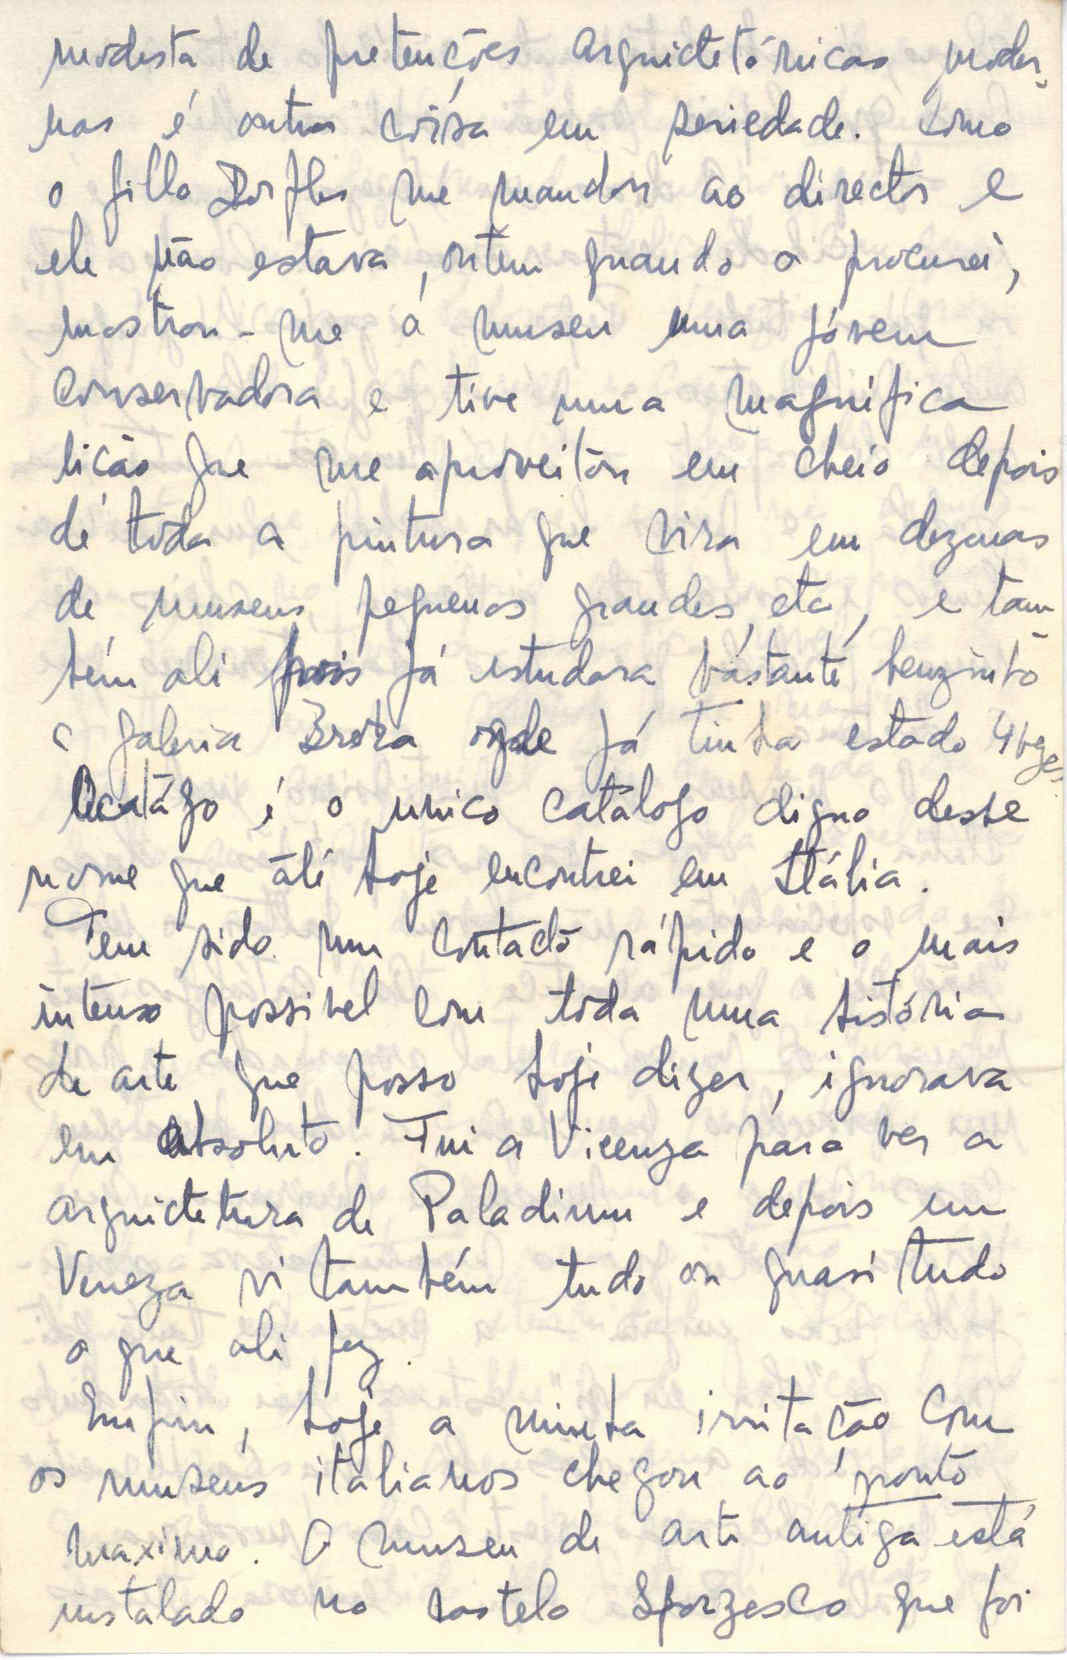 modesta de pretenções arquictetónicas moder-
nas é outra coisa em seriedade. Como
o Gillo Dorfles me mandou ao director e
ele não estava, ontem quando o procurei,
mostrou-me o museu uma jóvem
conservadora e tive uma magnífica
lição que me aproveitou em cheio depois
de toda a pintura que vira em dezenas
de museus pequenos grandes, etc, e tam
bém ali pois já estudara bastante benzinho
a galeria Brera onde já tinha estado 4 vezes
O catágo é o unico catálogo digno desse
nome que até hoje encontrei em Itália.
Tem sido um contacto rápido e o mais
intenso possivel com toda uma história
de arte que posso hoje dizer, ignorava
em absoluto. Fui a Vicenza para ver a
arquictetura de Paladium e depois em
Veneza vi também tudo ou quasi tudo
o que ali fez.
Emfim, hoje a minha irritação com
os museus italianos chegou ao ponto
maximo. O museu de arte antiga está
instalado no castelo Sforzesco que foi